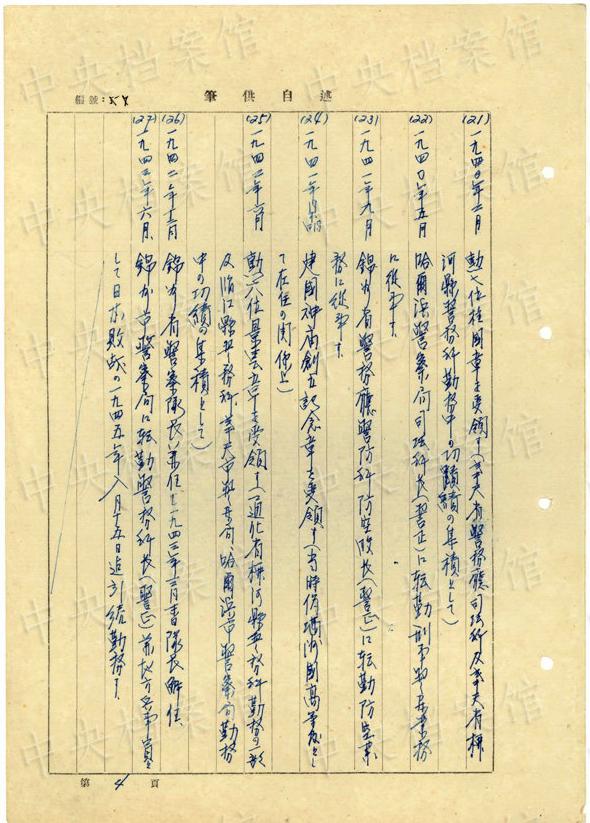 筆供自述
編號：54
(21) 一九四〇年二月 勲七位柱国章を受領す(奉天省警務廳司法科及奉天省
河縣警務科勤務中の功績の集積として)
(22) 一九四〇年五月 哈爾浜警察局司法科長(警正)に転勤刑事警察業務
に従事す、
(23) 一九四一年九月 錦州省警務廳警防科防空股長(警正)に転勤防空業
務に従事す、
(24) 一九四一年 建国神廟創立記念章を受領す(当時偽満洲国高等官とし
て在任の関係上)
(25) 勲六位景雲章を受領す(通化省 縣警務科勤務の一部
及 縣警務科、奉天市警察局、哈爾浜市警察局勤務
中の功績の集積として)
(26) 錦州省警察隊長兼任し一九四三年三月 隊長解任、
(27) 一九四三年六月、錦州市警察局に転勤警務科長(警正)
して日本敗戦の一九四五年八月十五日迄引続勤務す、
第 4 頁
中央档案馆